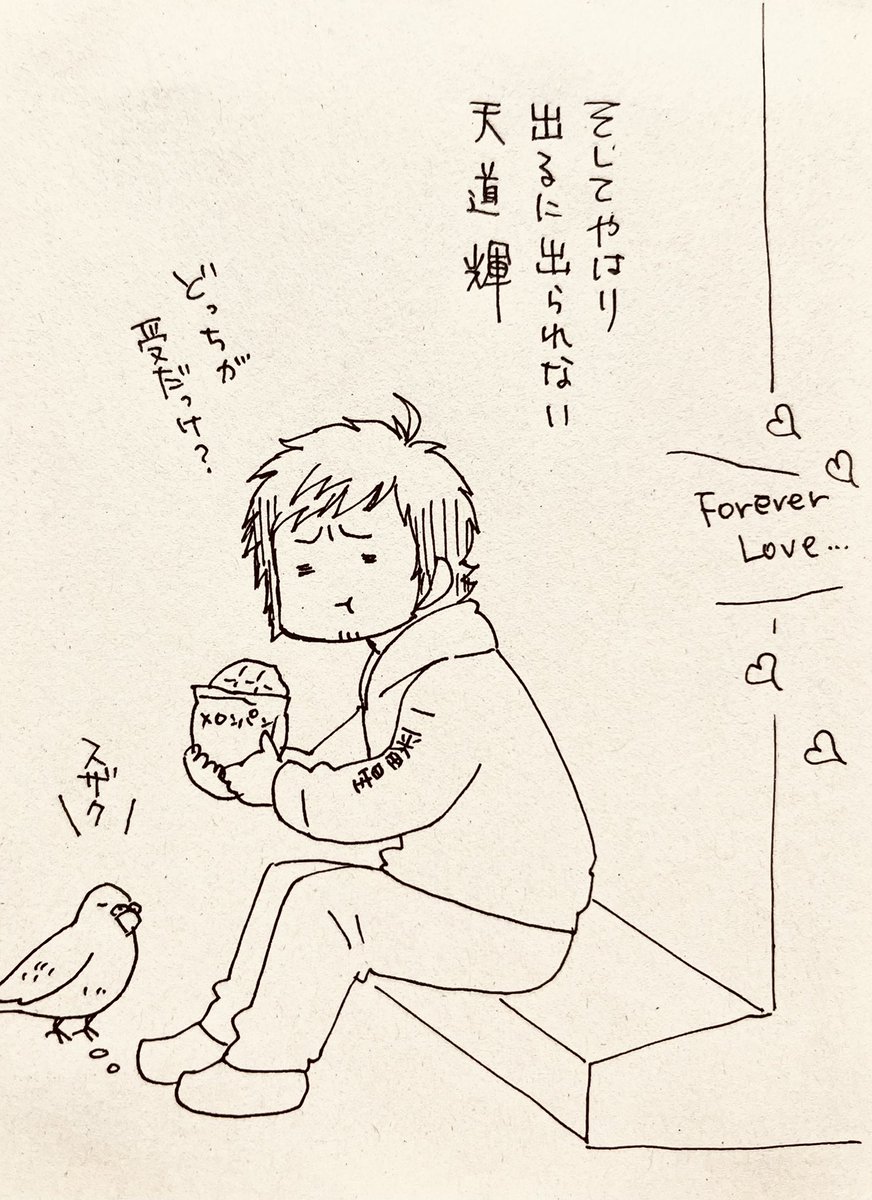 そしてやはり
出るに出られない
天道輝
どっちが
受だっけ?
Forever
Love...
メロンパン
スザク